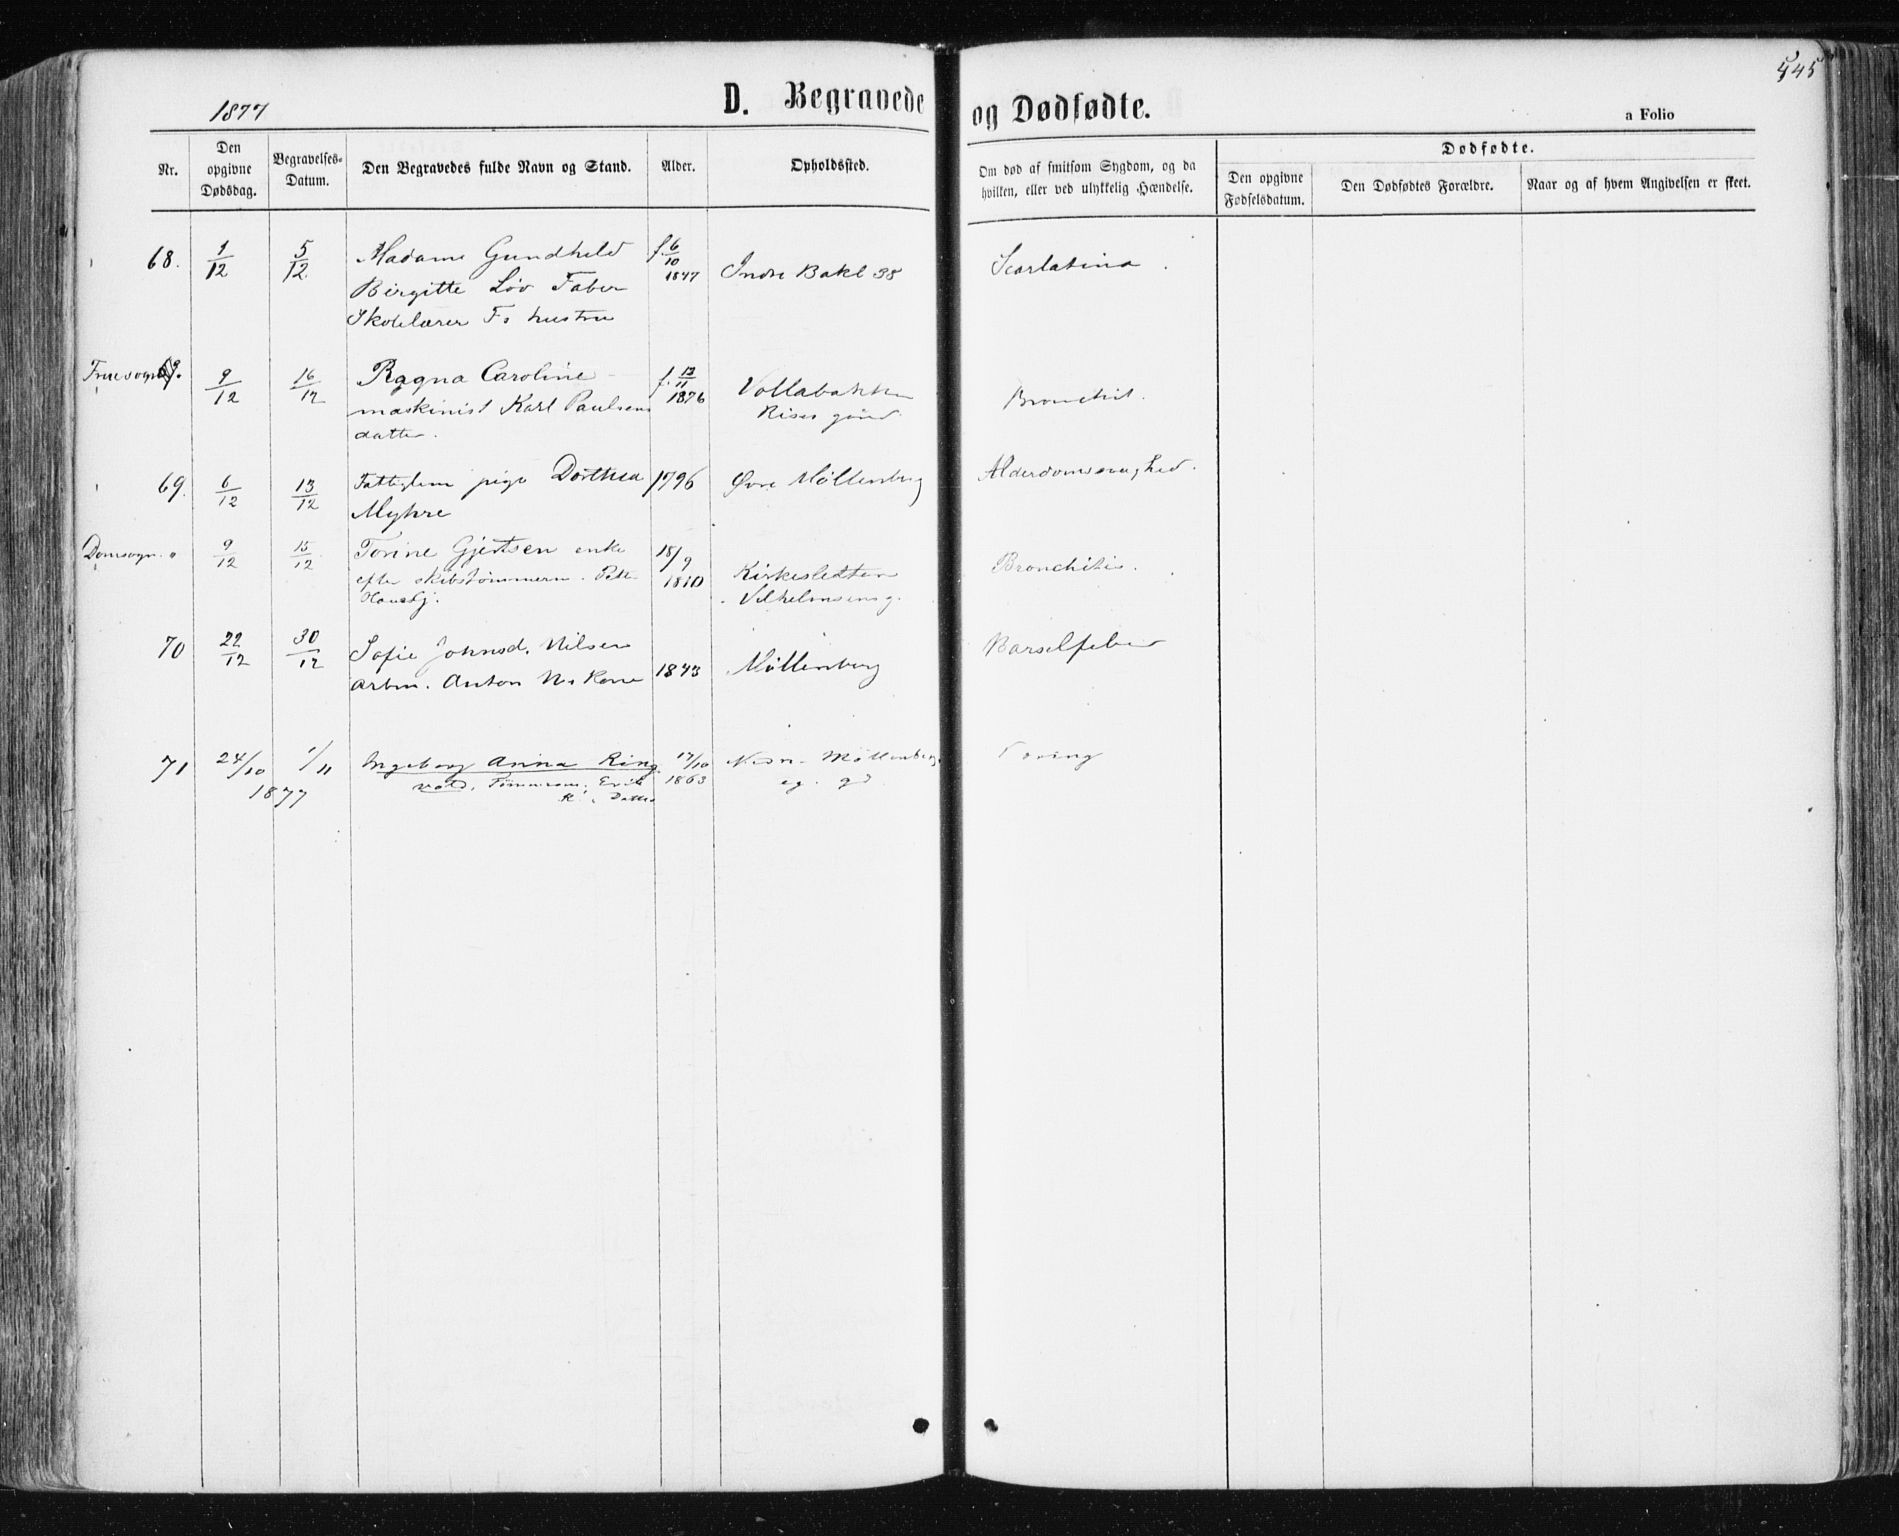 545
1877
D. Begravede og Dødfødte.
a Folio
Nr.
Den opgivne Dødsdag.
Begravelses-Datum.
Den Begravedes fulde Navn og Stand.
Alder.
Opholdssted.
Om død af smitsom Sygdom, og da
hvilken, eller ved ulykkelig Hændelse.
Dødfødte.
Den opgivne Fødselsdatum.
Den Dødfødtes Forældre.
Naar og af hvem Angivelsen er skeet.
68. 1/12 5/12 Madame Gundhild f. 6/10 1847 Indre Bakl 38 Scarlatina
Birgitte Löv Faber
Skolelærer Fs hustru
Fruesogn 9/12 16/12 Ragna Caroline f. 13/11 1876 Vollabakken Bronchit.
maskinist Karl Paulsens Rises gaard
datter.
69. 6/12 13/12 Fattiglem pige Dorthea 1796 Øvre Möllenberg Alderdomssvaghed.
Myhre
Domsogn. 9/12 15/12 Torine Gjertsen enke 18/9 1810 Kirkesletten Bronchitis.
efter skibstömmerm. Petter Vilhelmsensg.
70 22/12 30/12 Sofie Johnsd. Nilsen 1843 Möllenberg Barselfeber
arbm. Anton Ns Kone
71 24/10 1/11 Ingeborg Anna Ring 17/10 1863 Nedr. Möllenberg Tæring
1877 vold, Tömmerm. Erik eg. gd
R. Datter